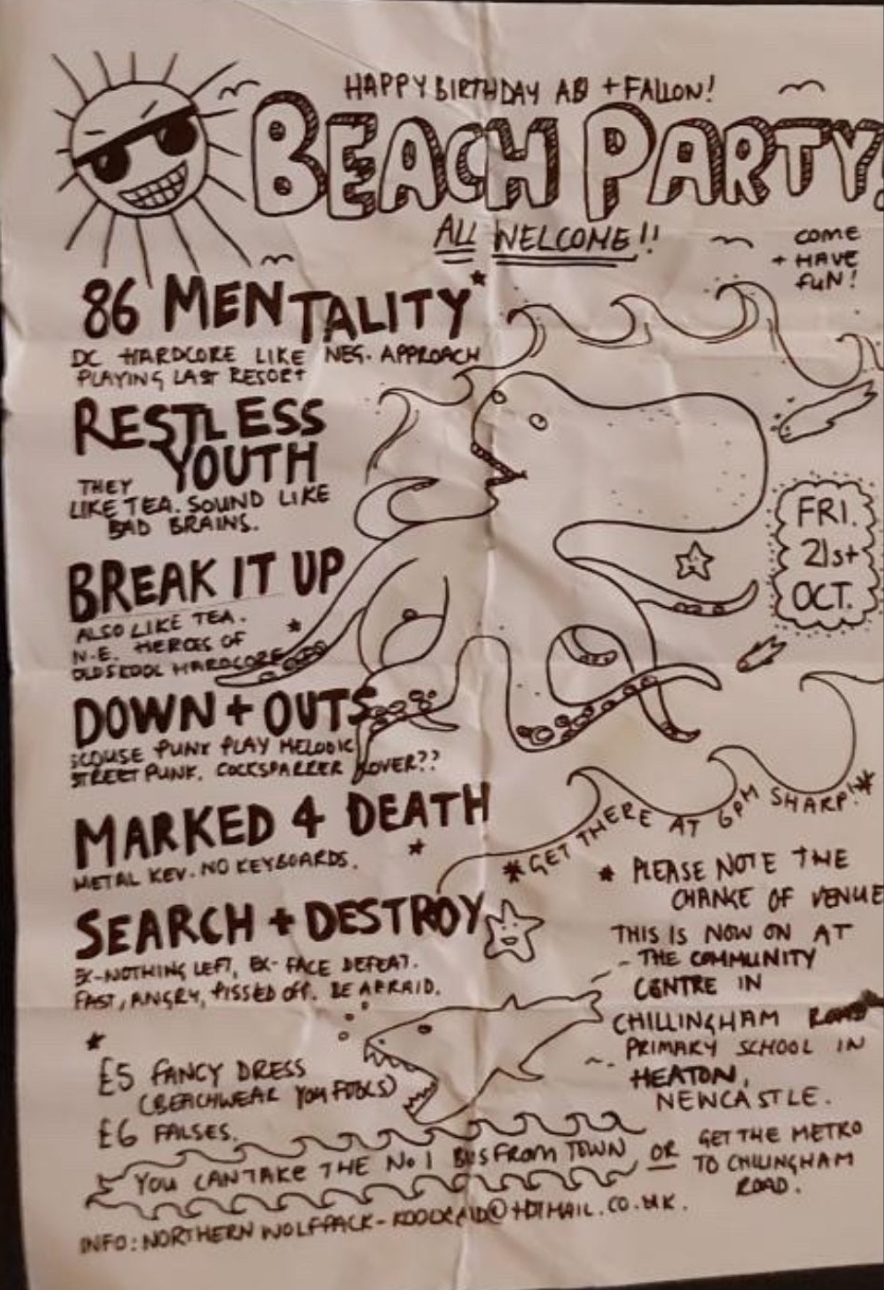 HAPPY BIRTHDAY AB + FALLON!
BEACH PARTY!
ALL WELCOME!!
COME
+ HAVE
FUN!
86 MENTALITY*
DC HARDCORE LIKE NEG. APPROACH
PLAYING LAST RESORT
RESTLESS
YOUTH
THEY
LIKE TEA. SOUND LIKE
BAD BRAINS.
FRI.
21st
OCT.
BREAK IT UP
ALSO LIKE TEA.
N.E. HEROES OF
OLDSKOOL HARDCORE
DOWN + OUTS
SCOUSE PUNX PLAY MELODIC
STREET PUNK. COCKSPARRER LOVER??
MARKED 4 DEATH
METAL KEV. NO KEYBOARDS.
*GET THERE AT 6PM SHARP!*
SEARCH + DESTROY
EX-NOTHING LEFT, EX-FACE DEFEAT.
FAST, ANGRY, PISSED OFF. BE AFRAID.
* PLEASE NOTE THE
CHANGE OF VENUE
THIS IS NOW ON AT
THE COMMUNITY
CENTRE IN
CHILLINGHAM ROAD
PRIMARY SCHOOL IN
HEATON,
NEWCASTLE.
*
£5 FANCY DRESS
(BEACHWEAR YOU FOOLS)
£6 FALSES.
YOU CAN TAKE THE No 1 BUS FROM TOWN OR
GET THE METRO
TO CHILLINGHAM
ROAD.
INFO: NORTHERN WOLFPACK-KOOLXAID@HOTMAIL.CO.UK.